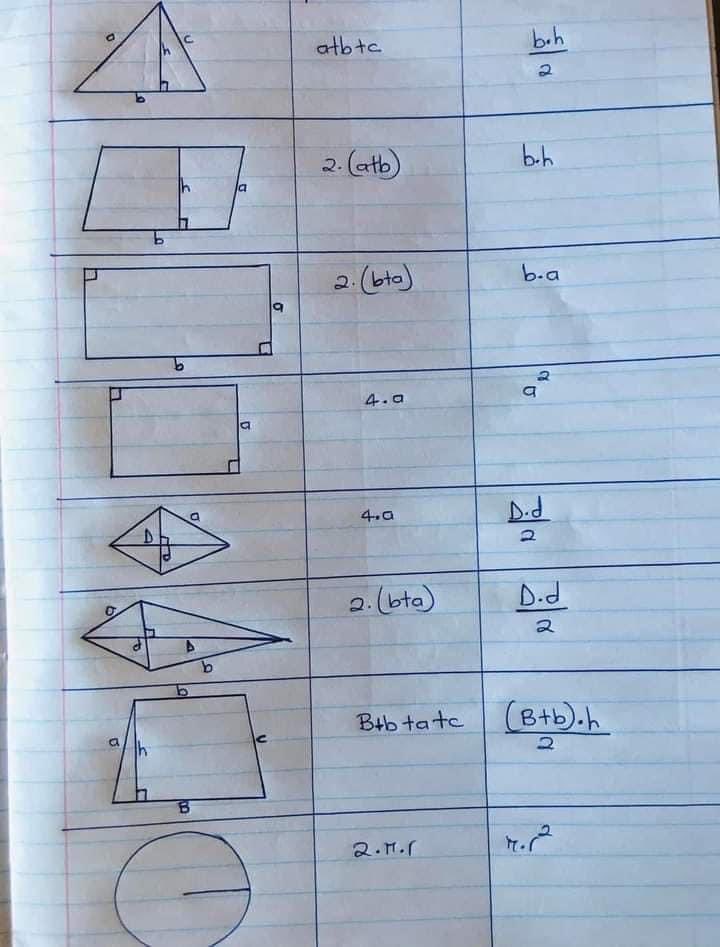 a h c a+b+c b·h/2
b
h a 2·(a+b) b·h
b
a 2·(b+a) b·a
b
a 4·a a²
D a d 4·a D·d/2
a d D b 2·(b+a) D·d/2
b
a h c B+b+a+c (B+b)·h/2
B
2·π·r π·r²